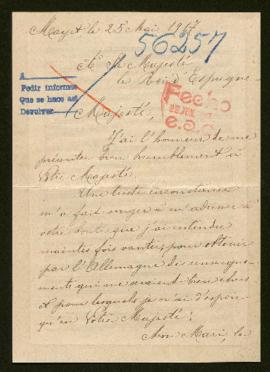 Mayet le 25 Mai 1917
56257
A Sa Majesté
le Roi d'Espagne
A
Pedir informes
Que se haco así
Devolver
Fecho
Majesté,
J'ai l'honneur de me
présenter bien humblement à
Votre Majesté.
Une triste circonstance
m'a fait songer à m'adresser à
votre bonté que j'ai entendu
maintes fois vanter, pour obtenir
par l'Allemagne des renseigne-
ments qui me seraient bien chers
et pour lesquels je n'ai d'espoir
qu'en Votre Majesté.
Mon Mari, le